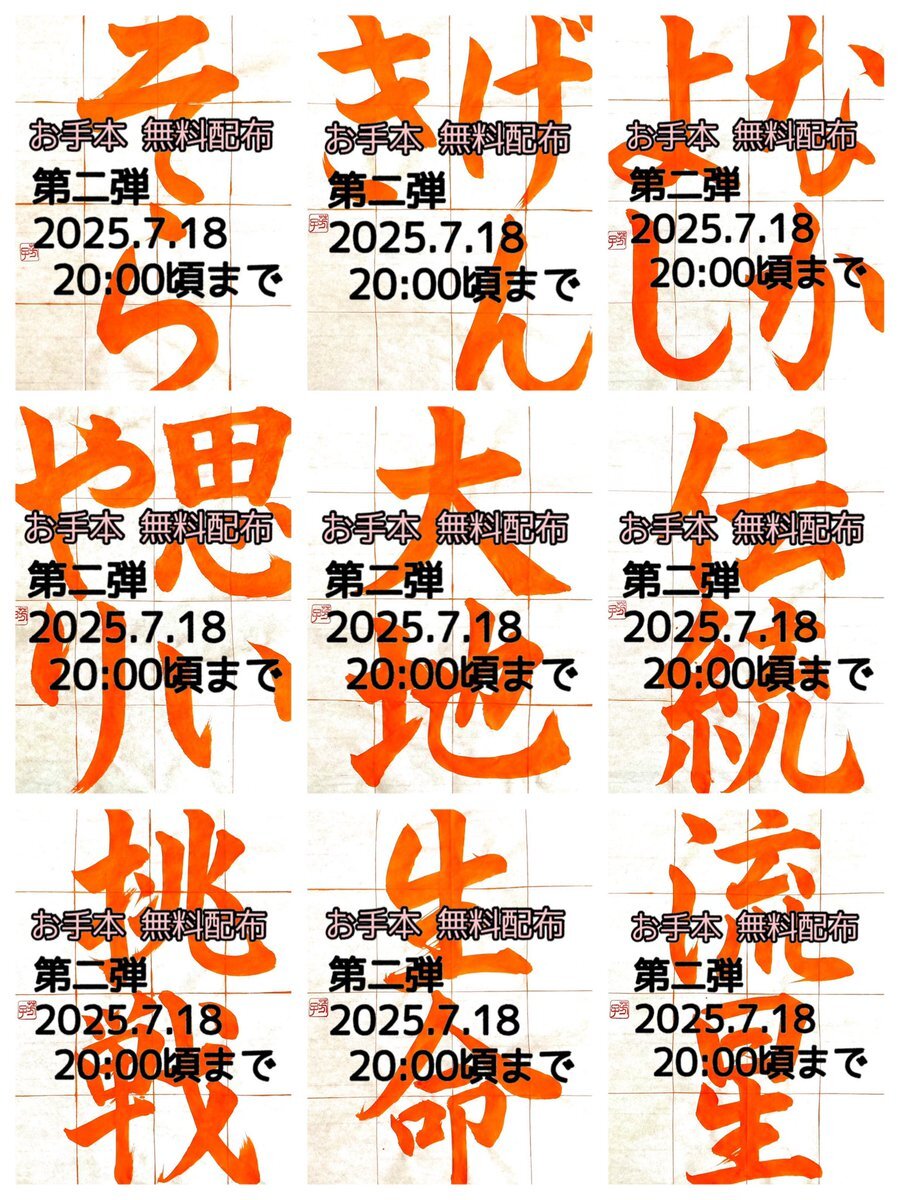 そら
お手本 無料配布
第二弾
2025.7.18
20:00頃まで
げん
き
お手本 無料配布
第二弾
2025.7.18
20:00頃まで
なか
よし
お手本 無料配布
第二弾
2025.7.18
20:00頃まで
思い
やり
お手本 無料配布
第二弾
2025.7.18
20:00頃まで
大地
お手本 無料配布
第二弾
2025.7.18
20:00頃まで
伝統
お手本 無料配布
第二弾
2025.7.18
20:00頃まで
挑戦
お手本 無料配布
第二弾
2025.7.18
20:00頃まで
生命
お手本 無料配布
第二弾
2025.7.18
20:00頃まで
流星
お手本 無料配布
第二弾
2025.7.18
20:00頃まで